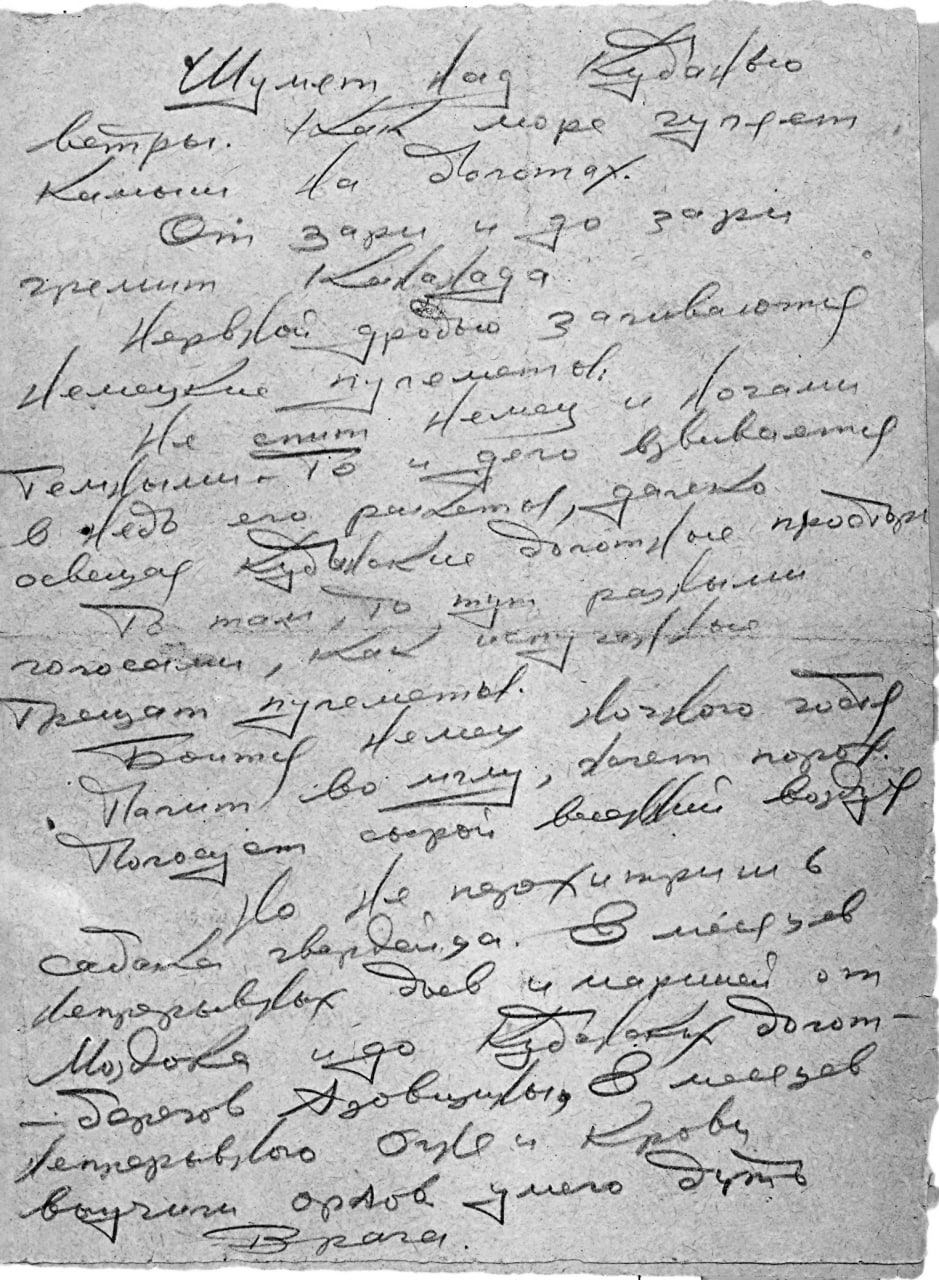 Шумят над Кубанью
ветры. Как море гуляет
Камыш на болотах.
От зари и до зари
гремит Канонада
Нервной дробью заливаются
Немецкие пулеметы.
Не спит Немец и Ночами
Темными. То и дело взвивается
в небо его ракеты, далеко
освещая Кубанские болотные просторы
То там, то тут разными
голосами, как испуганные
Трещат пулеметы.
Боится Немец Ночного боя
Палит во мглу, жжет порох.
Полосует сырой весенний воздух
Но не перехитришь
сабака гвардейца. 8 месяцев
Непрерывных боев и маршей от
Моздока и до Кубанских болот –
– берегов Азовщины, 8 месяцев
Непрерывного Огня и Крови
выучили орлов умело бить
Врага.